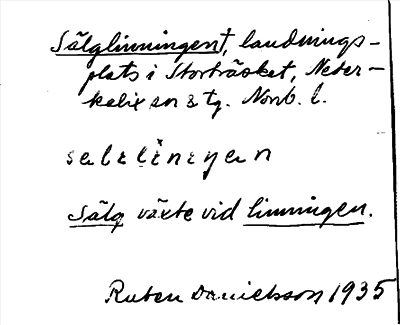 Sälglinningent, landnings-
plats i Storträsket, Neder-
kalix sn & tg. Norrb. l.
Sälg växte vid linningen.
Ruben Danielsson 1935